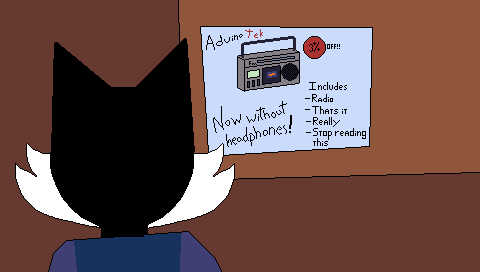 Aduino Tek
3% OFF!!
Now without
headphones!
Includes
-Radio
-Thats it
-Really
-Stop reading
this